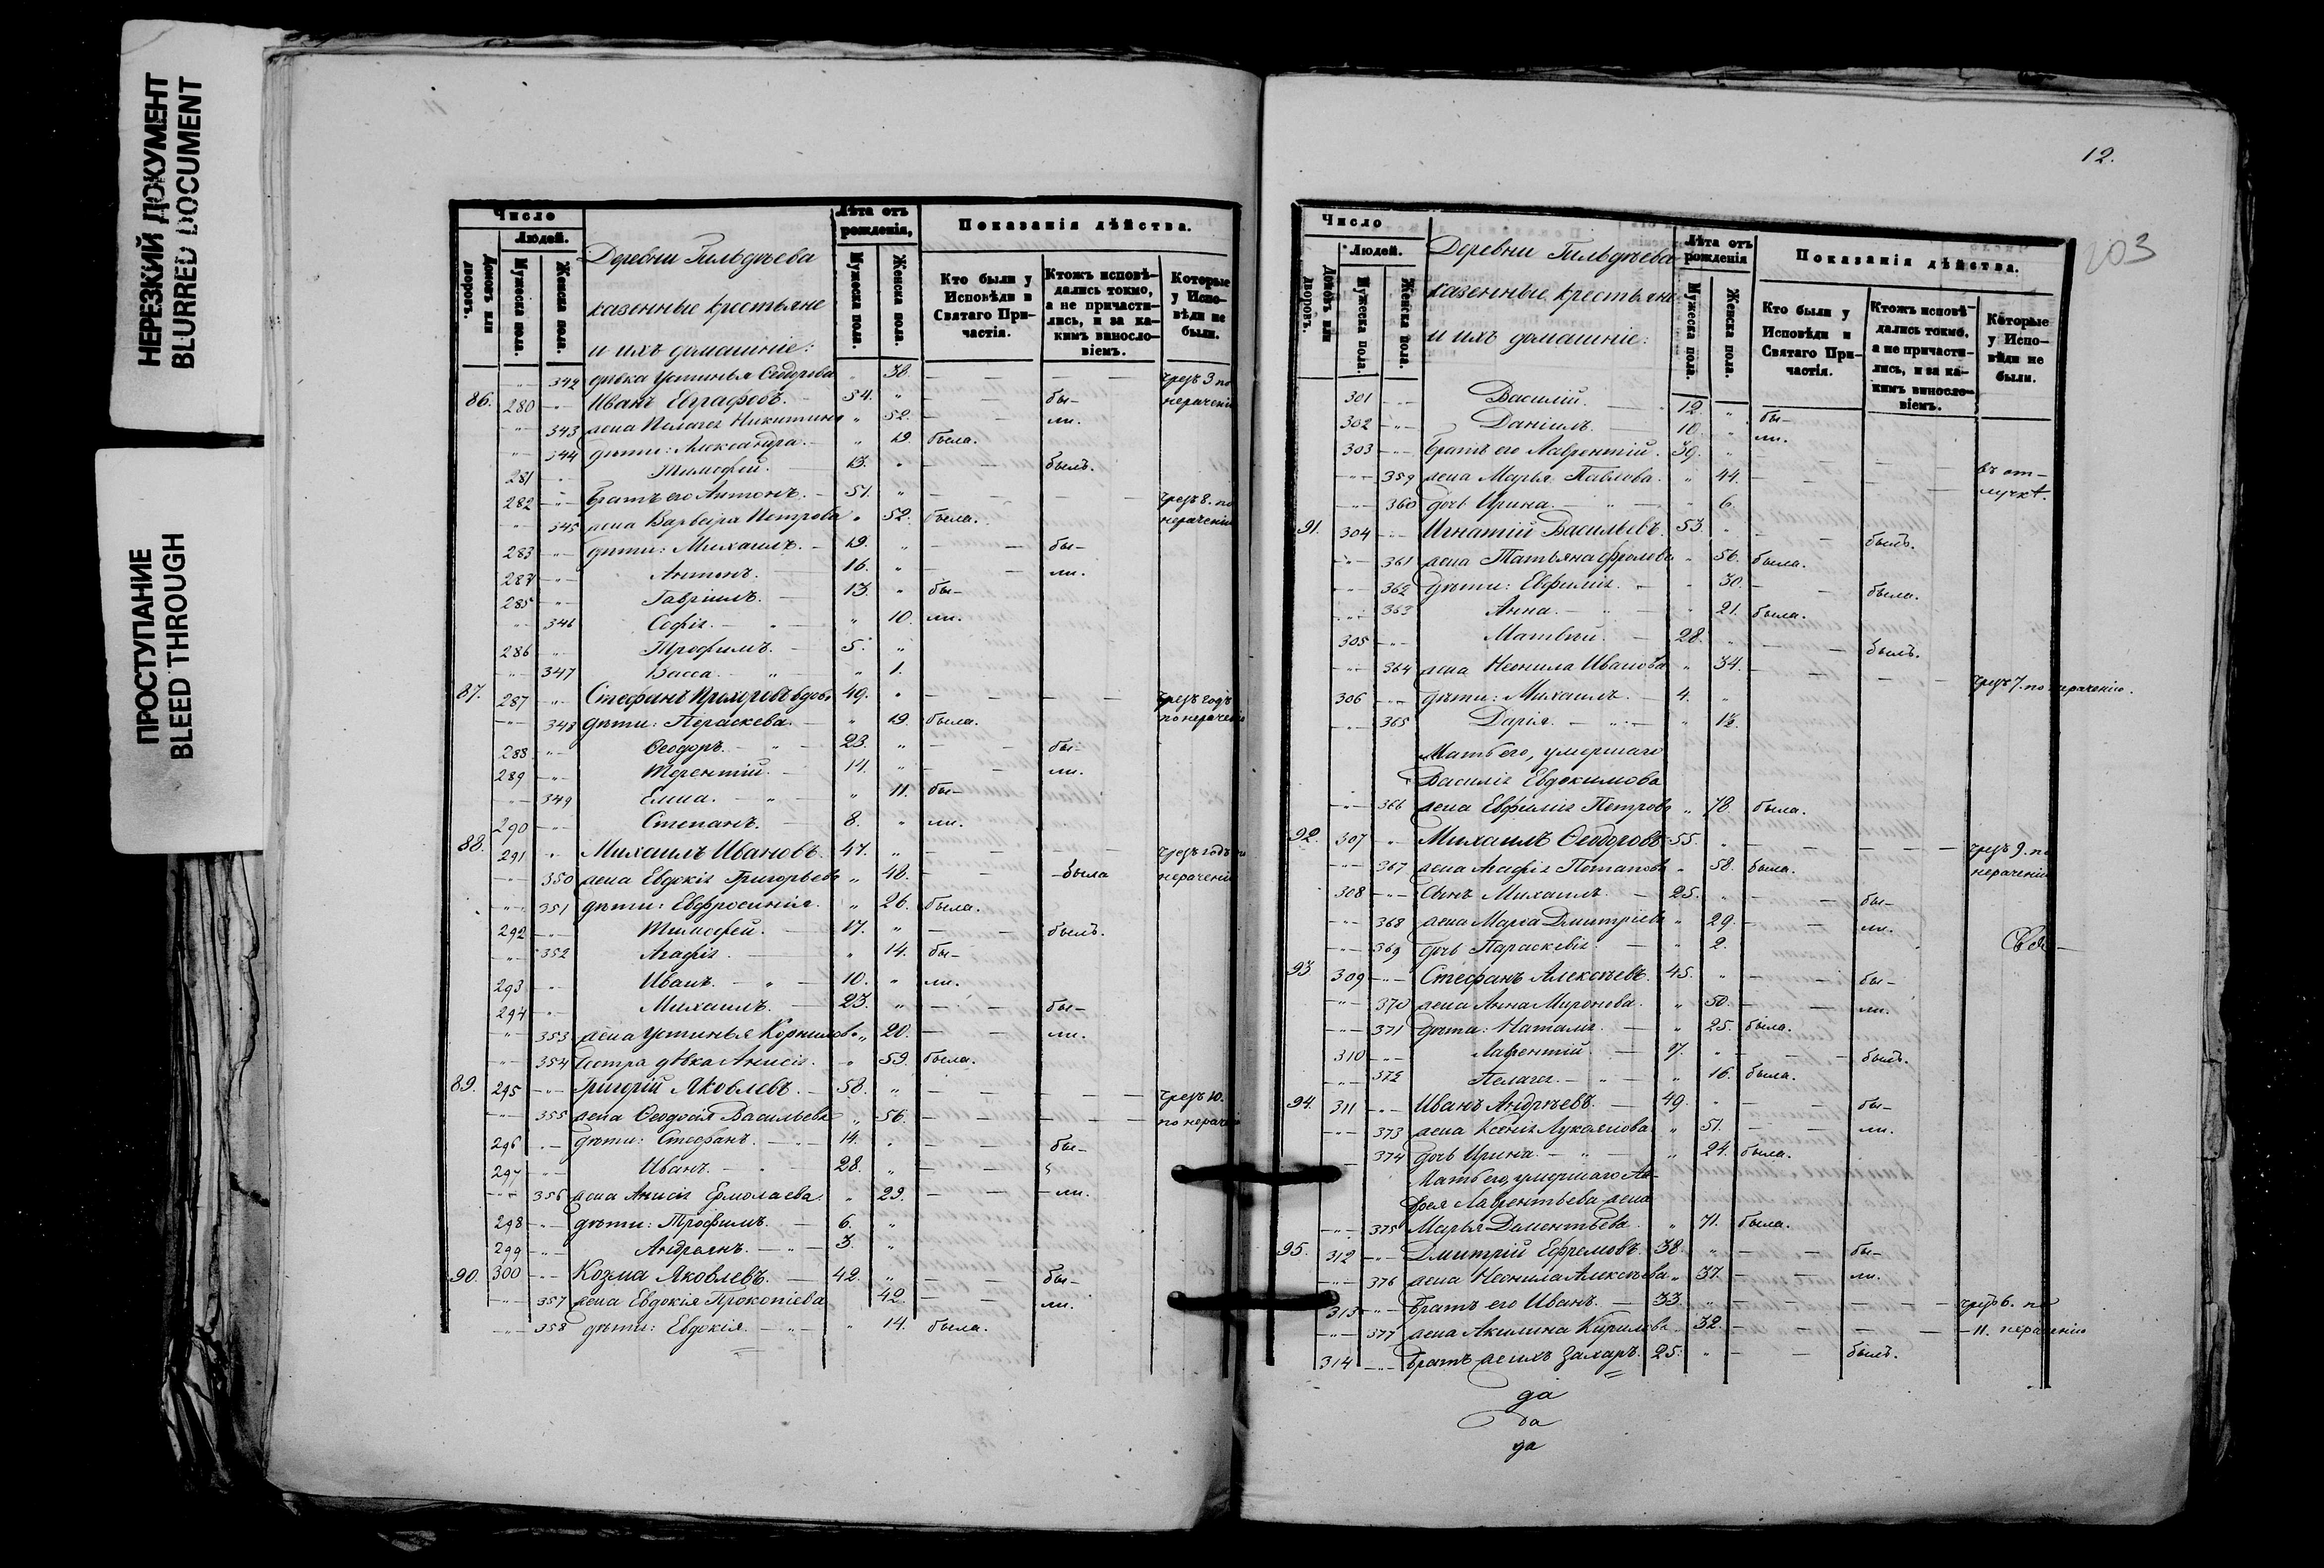 НЕРЕЗКИЙ ДОКУМЕНТ
BLURRED DOCUMENT
ПРОСТУПАНИЕ
BLEED THROUGH
Число
Людей.
Домовъ или дворовъ.
Мужеска пола.
Женска пола.
Деревни Гильдѣева
казенные крестьяне
и ихъ домашніе:
Лѣта отъ рожденія,
Мужеска пола.
Женска пола.
Показанія дѣйства.
Кто были у Исповѣди и Святаго Причастія.
Ктожъ исповѣдались токмо, а не причастились, и за какимъ винословіемъ.
Которые у Исповѣди не были.
342 дѣвка Устинья Ѳедорова 38. чрезъ 3. по
86. 280 Иванъ Евграфовъ. 54. бы- нераченію
343 жена Пелагея Никитина 52. ли.
344 дѣти: Александра. 19. была.
281 Тимофей. 13. былъ.
282 братъ его Антонъ. 51. чрезъ 8. по
345 жена Варвара Петрова 52. была. нераченію
283 дѣти: Михаилъ. 19. бы-
284 Антонъ. 16. ли.
285 Гавріилъ. 13. бы-
346 Софія. 10. ли.
286 Трофимъ. 5.
347 Васса. 1.
87. 287 Стефанъ Прохоровъ вдовъ 49. чрезъ годъ
348 дѣти: Параскева. 19. была. по нераченію
288 Ѳеодоръ. 23. бы-
289 Терентій. 14. ли.
349 Елена. 11. бы-
290 Степанъ. 8. ли.
88. 291 Михаилъ Ивановъ. 47. чрезъ годъ по
350 жена Евдокія Григорьева 48. была нераченію
351 дѣти: Евфросинія. 26. была.
292 Тимофей. 17. былъ.
352 Агафія. 14. бы-
293 Иванъ. 10. ли.
294 Михаилъ. 23. бы-
353 жена Устинья Корнилова 20. ли.
354 Сестра дѣвка Анисія. 59. была.
89. 295 Григорій Яковлевъ. 58. чрезъ 10.
355 жена Ѳеодосія Васильева 56. по нераченію
296 дѣти: Стефанъ. 14. бы-
297 Иванъ. 28.
356 жена Анисія Ермолаева. 29. ли.
298 дѣти: Трофимъ. 6.
299 Андреянъ. 3.
90. 300 Козма Яковлевъ. 42. бы-
357 жена Евдокія Прокопіева 42. ли.
358 дѣти: Евдокія. 14. была.
12.
203
Число
Людей.
Домовъ или дворовъ.
Мужеска пола.
Женска пола.
Деревни Гильдѣева
казенные крестьяне
и ихъ домашніе:
Лѣта отъ рожденія
Мужеска пола.
Женска пола.
Показанія дѣйства.
Кто были у Исповѣди и Святаго Причастія.
Ктожъ исповѣдались токмо, а не причастились, и за какимъ винословіемъ.
Которые у Исповѣди не были.
301 Василій. 12. бы-
302 Даніилъ. 10. ли.
303 братъ его Лаврентій. 39. въ от-
359 жена Марья Павлова. 44. лучкѣ.
360 дочь Ирина. 6.
91. 304 Игнатій Васильевъ. 53. былъ.
361 жена Татьяна Фролова 56. была.
362 дѣти: Евфимія. 30. была.
363 Анна. 21. была.
305 Матвей. 28. былъ.
364 жена Неонила Иванова 34. чрезъ 7. по нераченію.
306 дѣти: Михаилъ. 4.
365 Дарія.
Мать его, умершаго
Василія Евдокимова
366 жена Евфимія Петрова 78. была.
92. 307 Михаилъ Ѳеодоровъ 55. чрезъ 9. по
367 жена Агафія Потапова 58. была. нераченію
308 Сынъ Михаилъ. 25. бы-
368 жена Марѳа Дмитріева 29. ли.
369 дочь Параскевія. 2.
93 309 Стефанъ Алексѣевъ. 45. бы-
370 жена Анна Миронова. 50. ли.
371 дѣти: Наталія. 25. была.
310 Лаврентій. 7. былъ.
372 Пелагея. 16. была.
94. 311 Иванъ Андрѣевъ. 49. бы-
373 жена Ксенія Лукоянова 51. ли.
374 дочь Ирина. 24. была.
Мать его, умершаго Ан-
дрея Лаврентьева жена
375 Марья Дементьева. 71. была.
95. 312 Дмитрій Ефремовъ. 38. бы-
376 жена Неонила Алексѣева 37. ли.
313 братъ его Иванъ. 33. чрезъ 6. по
377 жена Акилина Кирилова 32. 11. нераченію
314 братъ же ихъ Захаръ. 25. былъ.